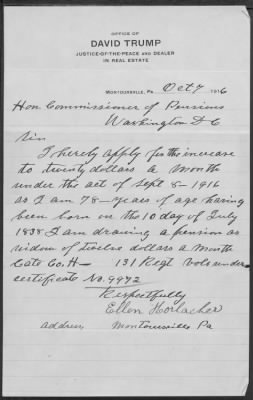 OFFICE OF
DAVID TRUMP
JUSTICE-OF-THE-PEACE AND DEALER
IN REAL ESTATE
MONTOURSVILLE, PA. Oct 7 1916
Hon Commissioner of Pensions
Washington D C
Sir
I hereby apply for the increase
to twenty dollars a month
under the act of Sept 8-1916
as I am 78- years of age having
been born on the 10 day of July
1838 I am drawing a pension as
widow of twelve dollars a month
Late Co. H- 131 Regt Vols under
certificate No. 9972
Respectfully
Ellen Horlacher
address Montoursville Pa